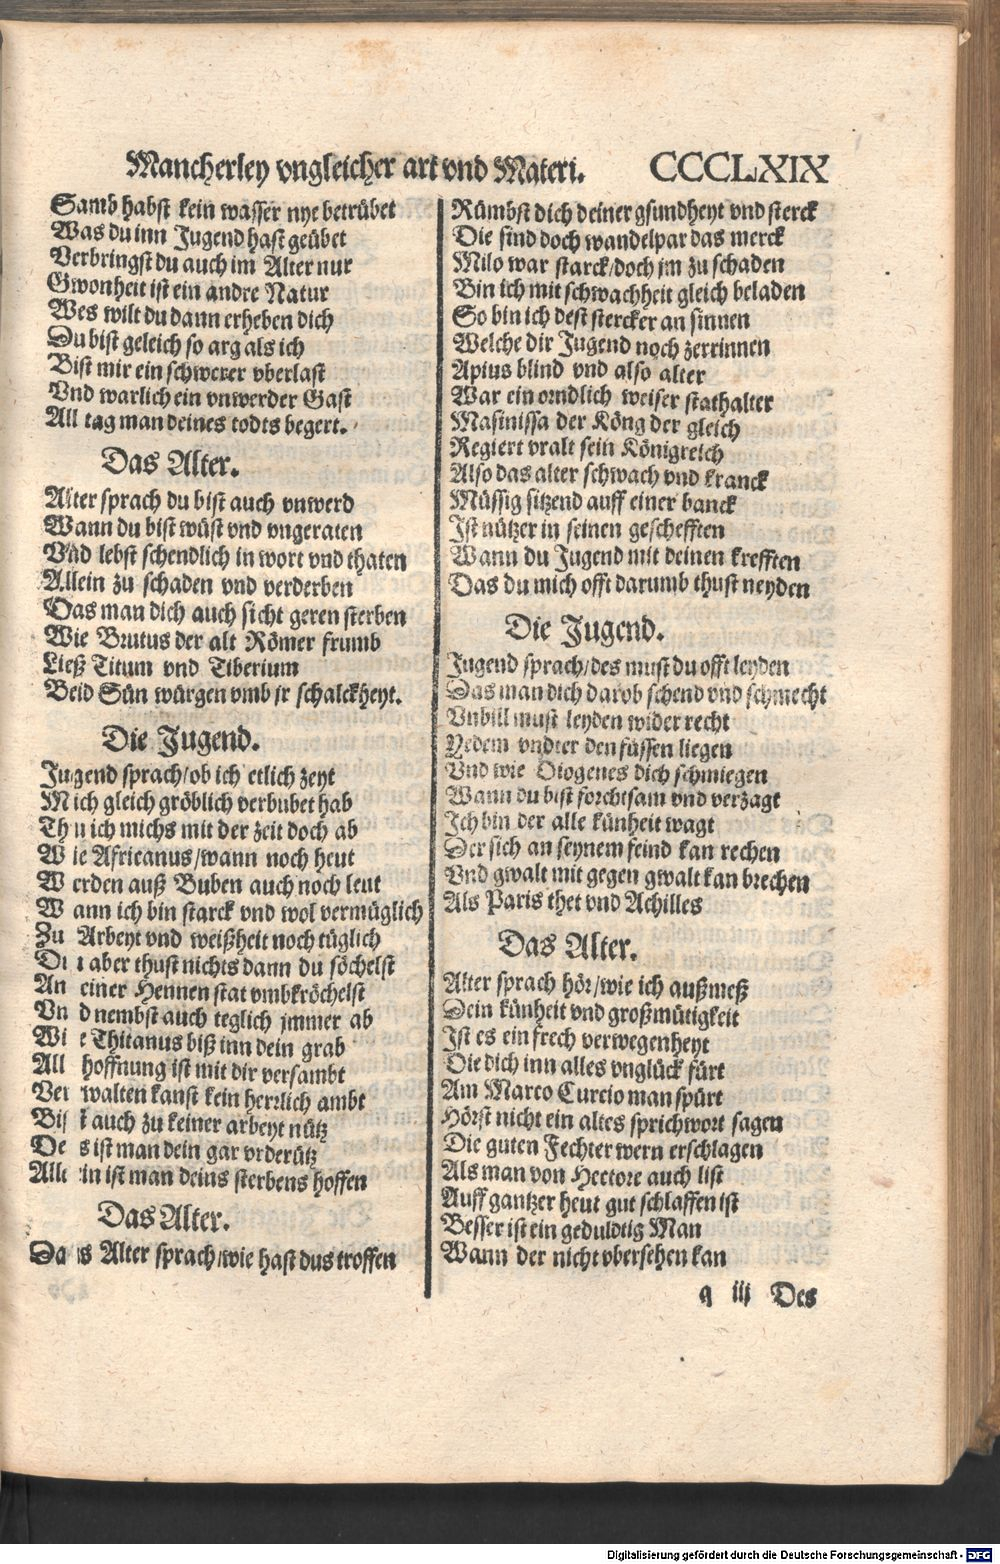 Mancherley vngleicher art vnd Materi. CCCLXIX
Samb habst kein wasser nye betrübet
Was du inn Jugend hast geübet
Verbringst du auch im Alter nur
Gwonheit ist ein andre Natur
Wes wilt du dann erheben dich
Du bist geleich so arg als ich
Bist mir ein schwerer vberlast
Vnd warlich ein vnwerder Gast
All tag man deines todts begert.
Das Alter.
Alter sprach du bist auch vnwerd
Wann du bist wüst vnd vngeraten
Vnd lebst schendlich in wort vnd thaten
Allein zu schaden vnd verderben
Das man dich auch sicht geren sterben
Wie Brutus der alt Römer frumb
Ließ Titum vnd Tiberium
Beid Sün würgen vmb jr schalckheyt.
Die Jugend.
Jugend sprach/ob ich etlich zeyt
Mich gleich gröblich verbubet hab
Thu ich michs mit der zeit doch ab
Wie Africanus/wann noch heut
Werden auß Buben auch noch leut
Wann ich bin starck vnd wol vermüglich
Zu Arbeyt vnd weißheit noch tüglich
Du aber thust nichts dann du söchelst
An einer Hennen stat vmbkröchelst
Vnd nembst auch teglich jmmer ab
Wie Thitanus biß inn dein grab
All hoffnung ist mit dir versambt
Verwalten kanst kein herrlich ambt
Bist auch zu keiner arbeyt nütz
Des ist man dein gar vrderütz
Allein ist man deins sterbens hoffen
Das Alter.
Das Alter sprach/wie hast dus troffen
Rümbst dich deiner gsundheyt vnd sterck
Die sind doch wandelpar das merck
Milo war starck/doch jm zu schaden
Bin ich mit schwachheit gleich beladen
So bin ich dest stercker an sinnen
Welche dir Jugend noch zerrinnen
Apius blind vnd also alter
War ein orndlich weiser stathalter
Masinissa der Köng der gleich
Regiert vralt sein Königreich
Also das alter schwach vnd kranck
Müssig sitzend auff einer banck
Ist nützer in seinen geschefften
Wann du Jugend mit deinen krefften
Das du mich offt darumb thust neyden
Die Jugend.
Jugend sprach/des must du offt leyden
Das man dich darob schend vnd schmecht
Vnbill must leyden wider recht
Yedem vndter den füssen liegen
Vnd wie Diogenes dich schmiegen
Wann du bist forchtsam vnd verzagt
Ich bin der alle künheit wagt
Der sich an seynem feind kan rechen
Vnd gwalt mit gegen gwalt kan brechen
Als Paris thet vnd Achilles
Das Alter.
Alter sprach hör/wie ich außmeß
Dein künheit vnd großmütigkeit
Ist es ein frech verwegenheyt
Die dich inn alles vnglück fürt
Am Marco Curcio man spürt
Hörst nicht ein altes sprichwort sagen
Die guten Fechter wern erschlagen
Als man von Hectore auch list
Auff gantzer heut gut schlaffen ist
Besser ist ein geduldtig Man
Wann der nicht vbersehen kan
q iij Des
Digitalisierung gefördert durch die Deutsche Forschungsgemeinschaft - DFG